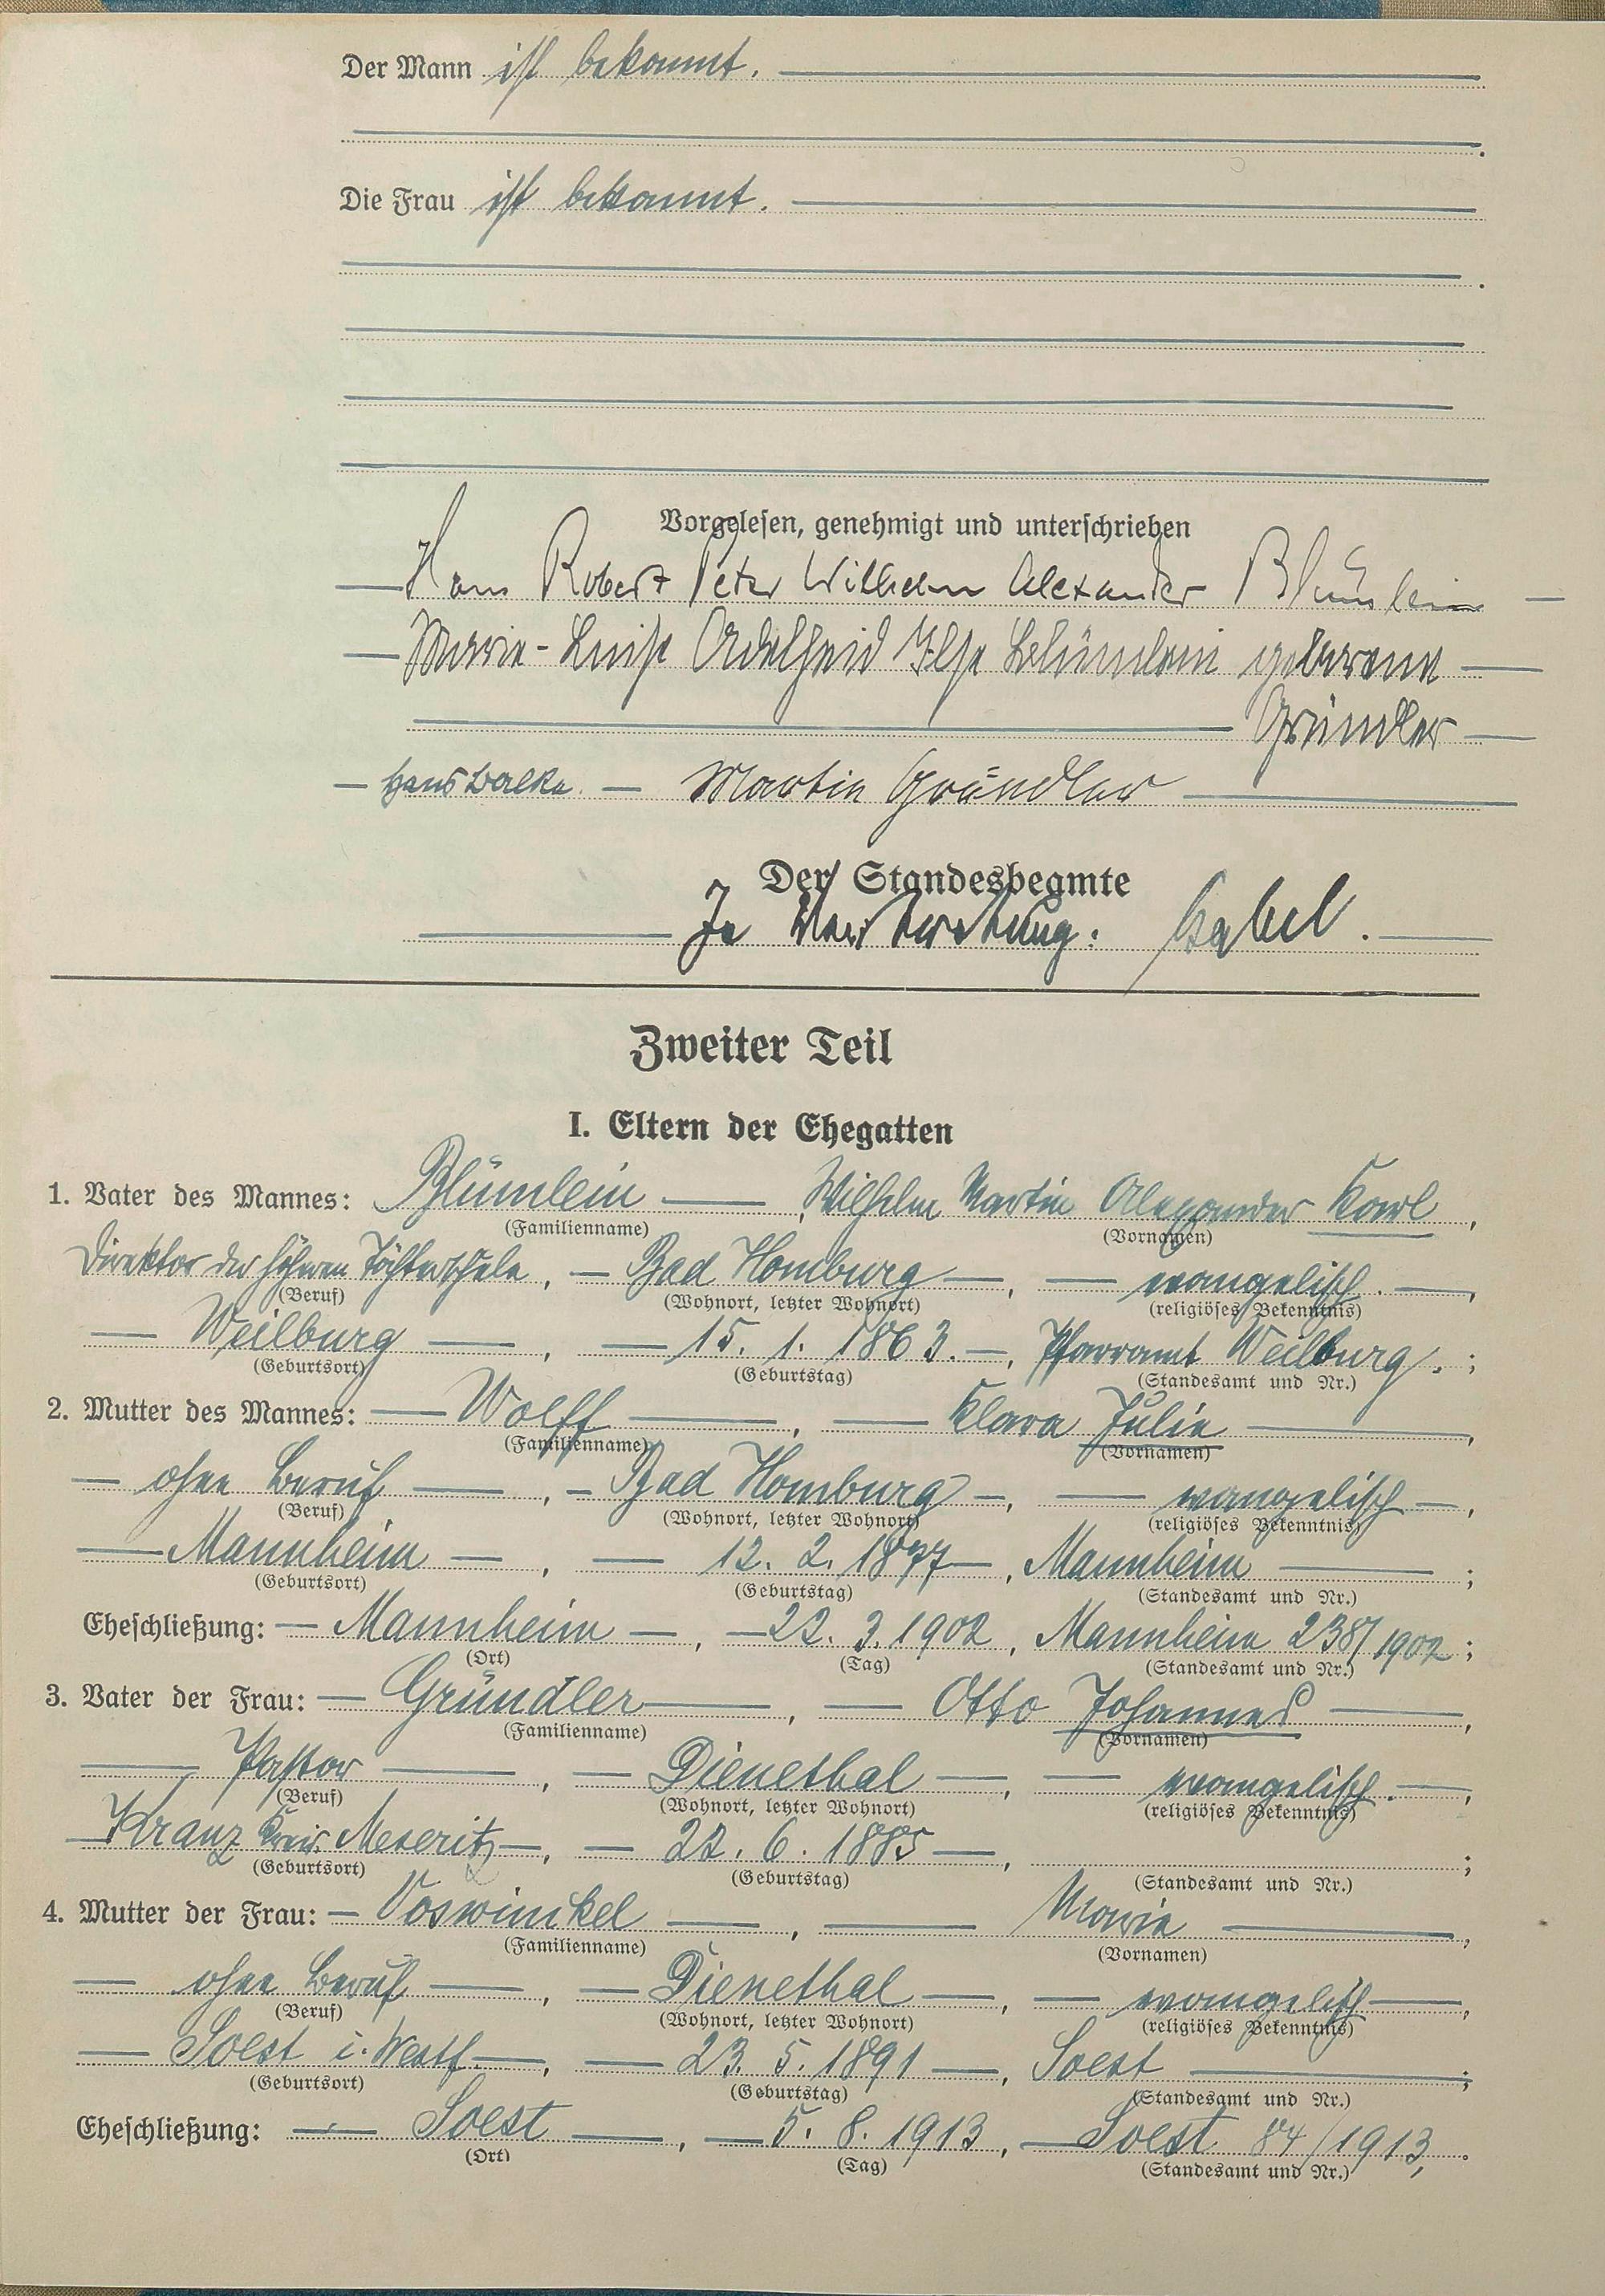 Der Mann ist bekannt.
Die Frau ist bekannt.
Vorgelesen, genehmigt und unterschrieben
Hans Robert Peter Wilhelm Alexander Blümlein
Marie-Luise Adelheid Ilse Blümlein geborene
Gründler
Hans Balke. Martin Gründler
Der Standesbeamte
In Vertretung: Gabel.
Zweiter Teil
I. Eltern der Ehegatten
1. Vater des Mannes: Blümlein, Wilhelm Martin Alexander Karl,
(Familienname) (Vornamen)
Direktor der höheren Töchterschule, Bad Homburg, evangelisch.,
(Beruf) (Wohnort, letzter Wohnort) (religiöses Bekenntnis)
Weilburg, 15. 1. 1863., Pfarramt Weilburg.;
(Geburtsort) (Geburtstag) (Standesamt und Nr.)
2. Mutter des Mannes: Wolff, Klara Julie,
(Familienname) (Vornamen)
ohne Beruf, Bad Homburg, evangelisch,
(Beruf) (Wohnort, letzter Wohnort) (religiöses Bekenntnis)
Mannheim, 12. 2. 1877, Mannheim;
(Geburtsort) (Geburtstag) (Standesamt und Nr.)
Eheschließung: Mannheim, 22. 3. 1902, Mannheim 238/1902;
(Ort) (Tag) (Standesamt und Nr.)
3. Vater der Frau: Gründler, Otto Johannes,
(Familienname) (Vornamen)
Pastor, Dienethal, evangelisch.,
(Beruf) (Wohnort, letzter Wohnort) (religiöses Bekenntnis)
Kranz Kreis Meseritz, 22. 6. 1885,;
(Geburtsort) (Geburtstag) (Standesamt und Nr.)
4. Mutter der Frau: Voswinckel, Marie,
(Familienname) (Vornamen)
ohne Beruf, Dienethal, evangelisch,
(Beruf) (Wohnort, letzter Wohnort) (religiöses Bekenntnis)
Soest i. Westf., 23. 5. 1891, Soest;
(Geburtsort) (Geburtstag) (Standesamt und Nr.)
Eheschließung: Soest, 5. 8. 1913, Soest 84/1913.
(Ort) (Tag) (Standesamt und Nr.)